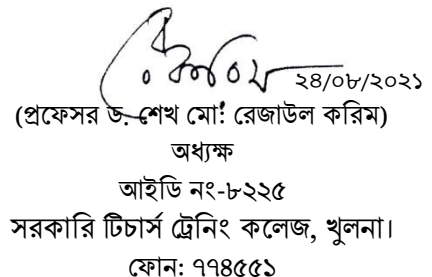 ২৪/০৮/২০২১
(প্রফেসর ড. শেখ মো: রেজাউল করিম)
অধ্যক্ষ
আইডি নং-৮২২৫
সরকারি টিচার্স ট্রেনিং কলেজ, খুলনা।
ফোন: ৭৭৪৫৫১